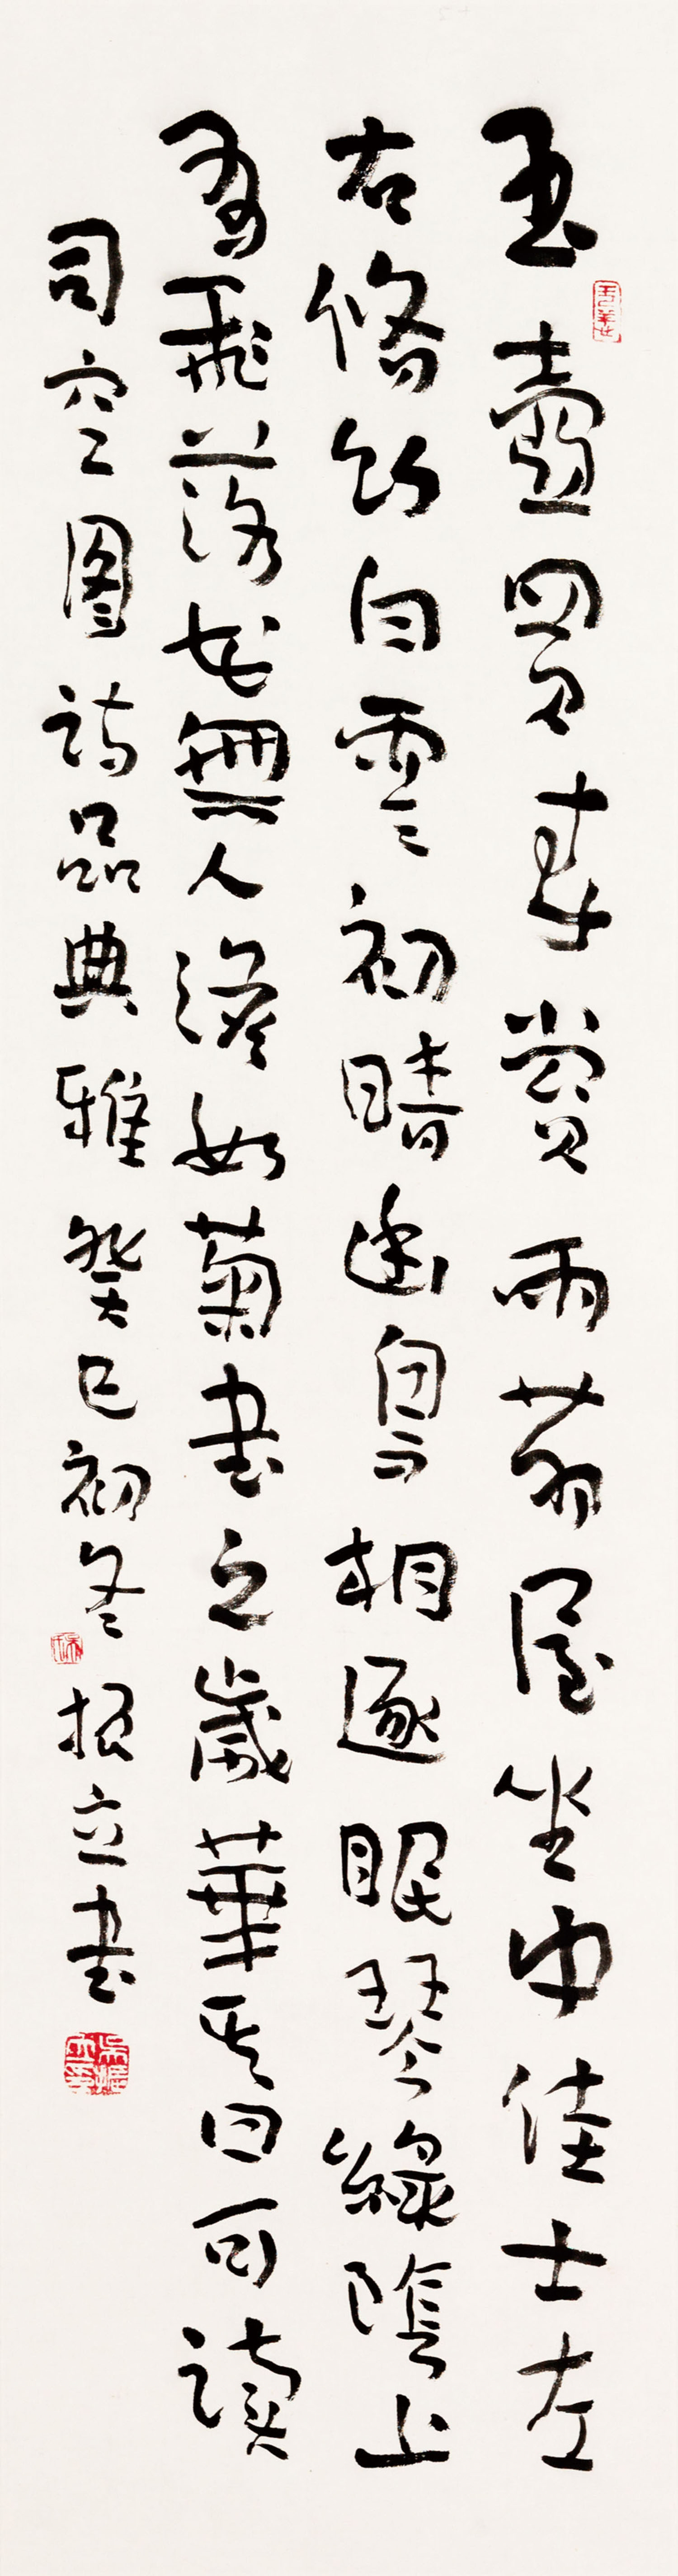 玉壺買春賞雨茆屋坐中佳士左
右脩竹白雲初晴幽鳥相逐眠琴綠陰上
有飛落花無人澹如菊書之歲華其曰可讀
司空图詩品典雅癸巳初冬振立書